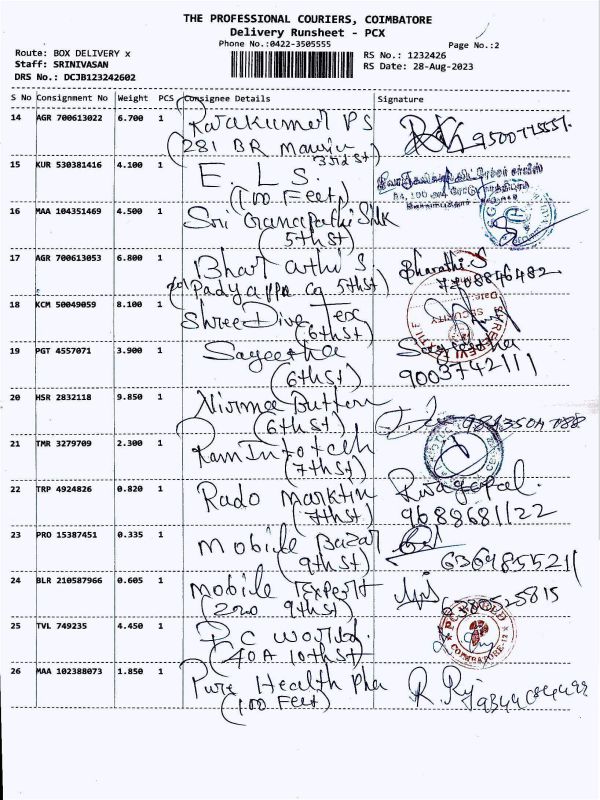 THE PROFESSIONAL COURIERS, COIMBATORE
Delivery Runsheet - PCX
Phone No.:0422-3505555
Page No.:2
Route: BOX DELIVERY x
Staff: SRINIVASAN
DRS No.: DCJB123242602
RS No.: 1232426
RS Date: 28-Aug-2023
S No Consignment No Weight PCS Consignee Details Signature
14 AGR 700613022 6.700 1 Rajakumar P S
(281 BR
3rd St)
15 KUR 530381416 4.100 1 E. L S.
(100 Feet)
16 MAA 104351469 4.500 1 Sri Ganapathi Silk
(5th St)
17 AGR 700613053 6.800 1 Bharathi S Bharathi.S
Padyappa Cg 5th St) 7708846482
18 KCM 50049059 8.100 1 Shree Diva Tex
(6th St) SECURITY
19 PGT 4557071 3.900 1 Sageetha
(6th St) 9003742111
20 HSR 2832118 9.850 1 Nirma Button
(6th St)
21 TMR 3279709 2.300 1 Ram Infotech
(7th St)
22 TRP 4924826 0.820 1 Rado Marktin Rajagopal.
(7th St) 9688681122
23 PRO 15387451 0.335 1 Mobile Bazar
(9th St) 6369855211
24 BLR 210587966 0.605 1 Mobile Expert
(220 9th St)
25 TVL 749235 4.450 1 P C World. PC WORLD
(40A 10th St) COIMBATORE-12
26 MAA 102388073 1.850 1 Pure Health Pha
(100 Feet)